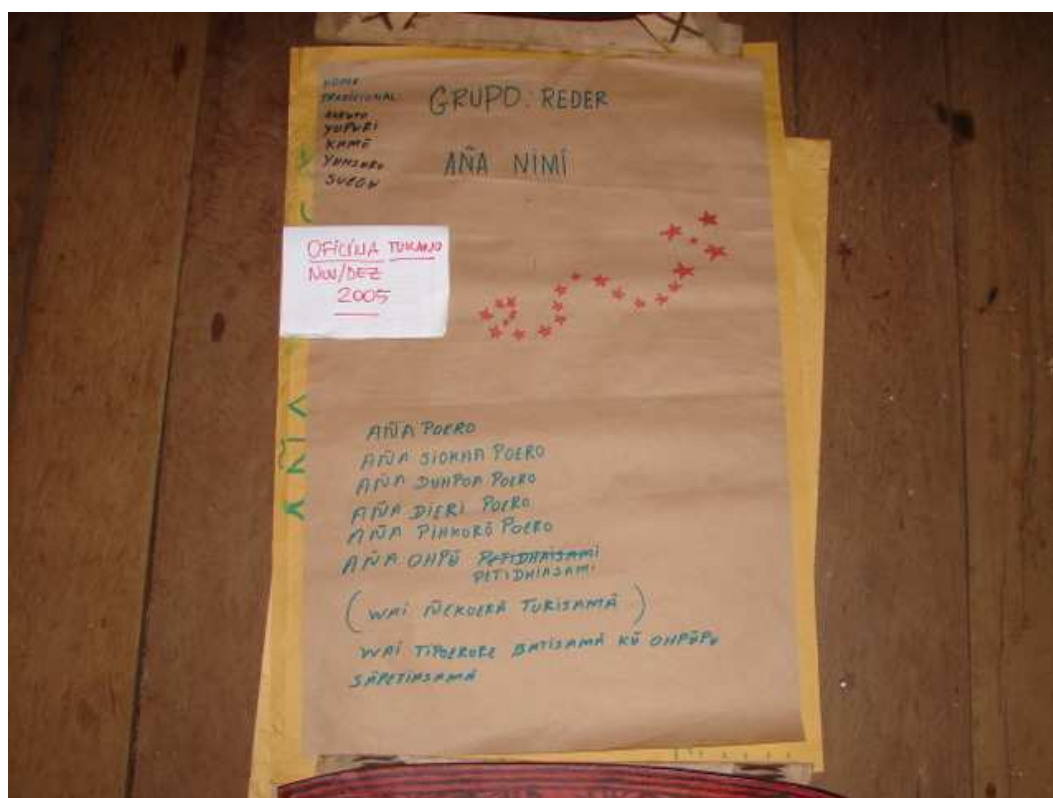 NOME
TRADICIONAL:
YUPURI
KAMĒ
GRUPO: REDER
AÑA NIMÍ
OFICINA TUKANO
NOV/DEZ
2005
AÑA POERO
AÑA SIOKHA POERO
AÑA DUHPOA POERO
AÑA DIERI POERO
AÑA PIHKORÕ POERO
AÑA OHPŨ PETIDHAISAMI
PETIDHIASAMI
(WAI ÑEKOERÃ TURISAMÃ)
WAI TIPOERORE BATISAMÁ KŨ OHPŨPŨ
SÃPETIASAMÁ